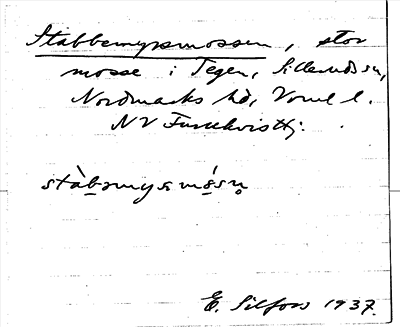 Stabbemyrsmossen, stor
mosse i Tegen, Silleruds sn,
Nordmarks hd, Vrml l.
NV
stàbəmyṣmòsṇ
E. Silfors 1937.